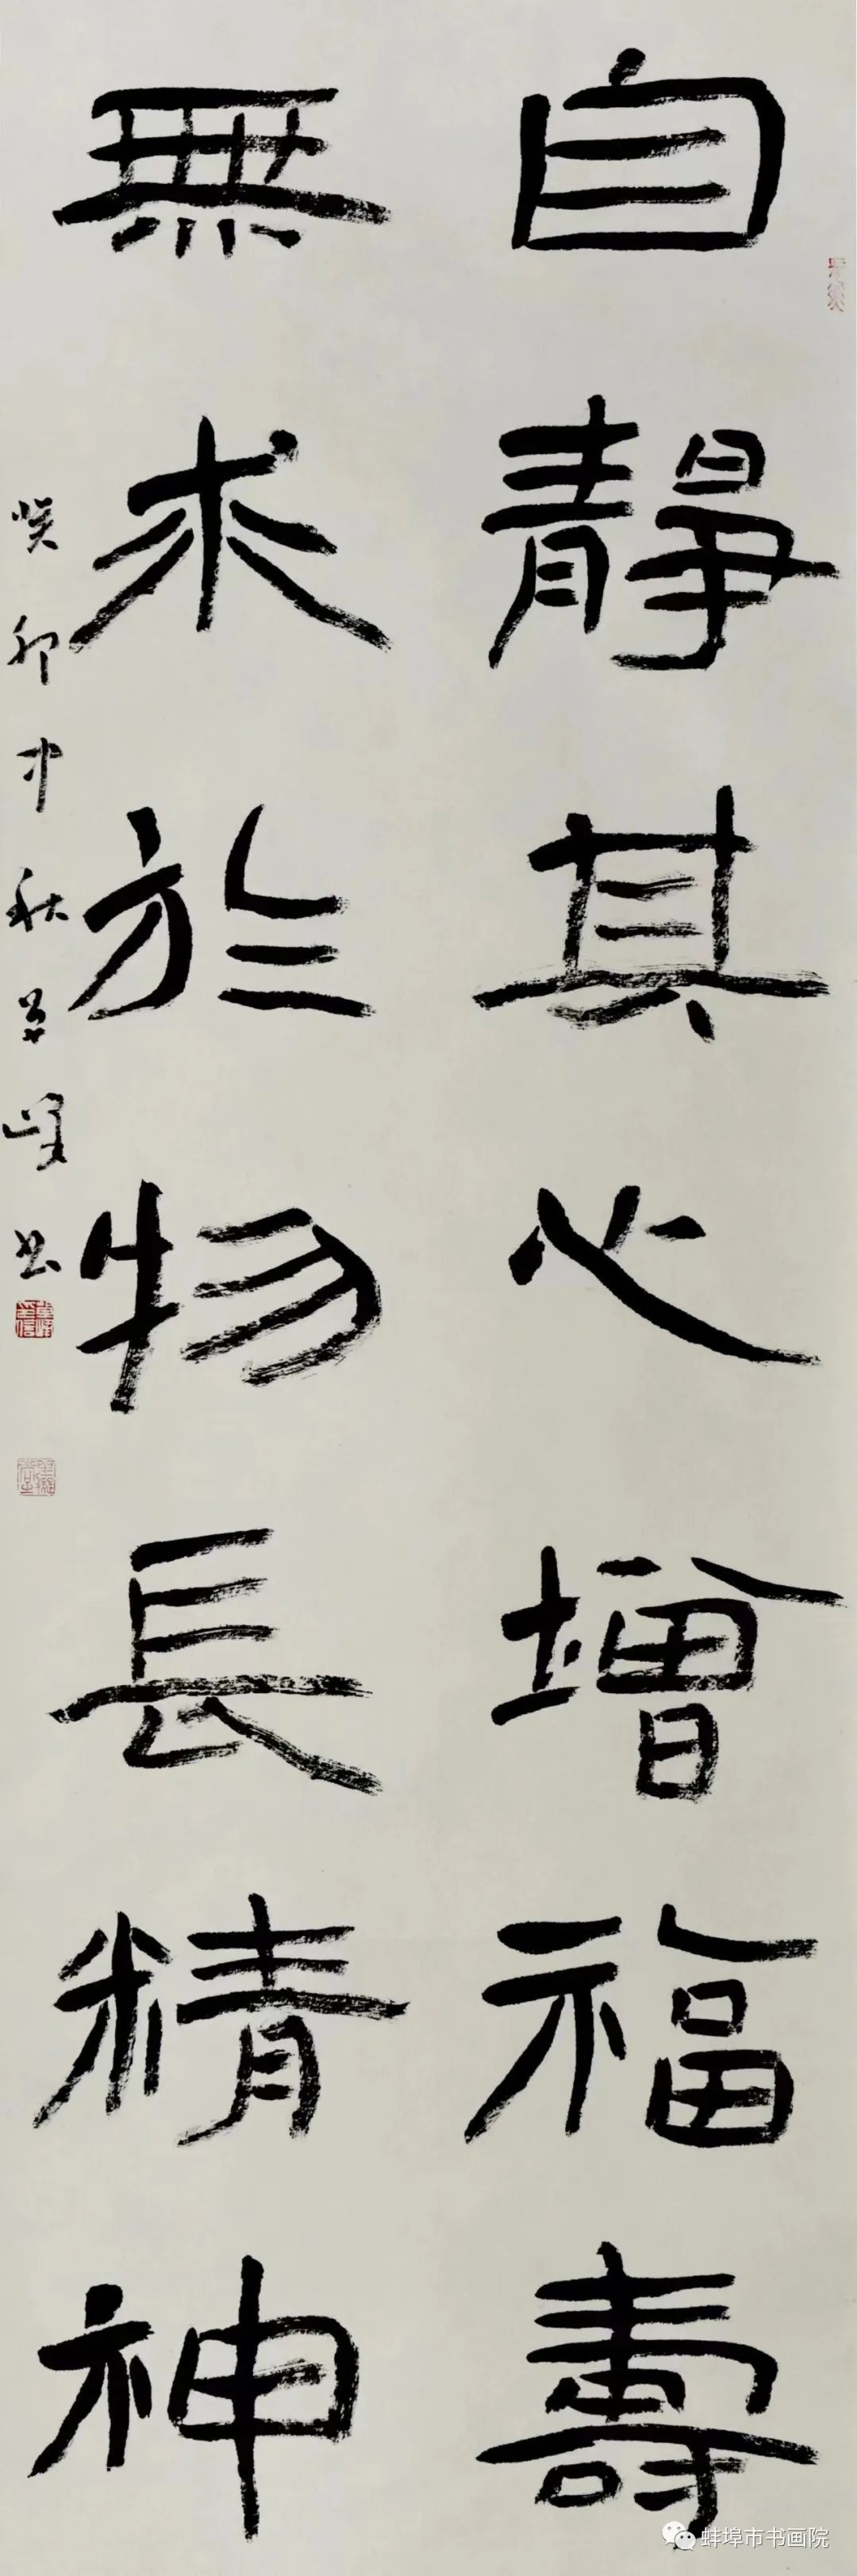 自靜其心增福壽
無求於物長精神
癸卯中秋草堂書
蚌埠市书画院